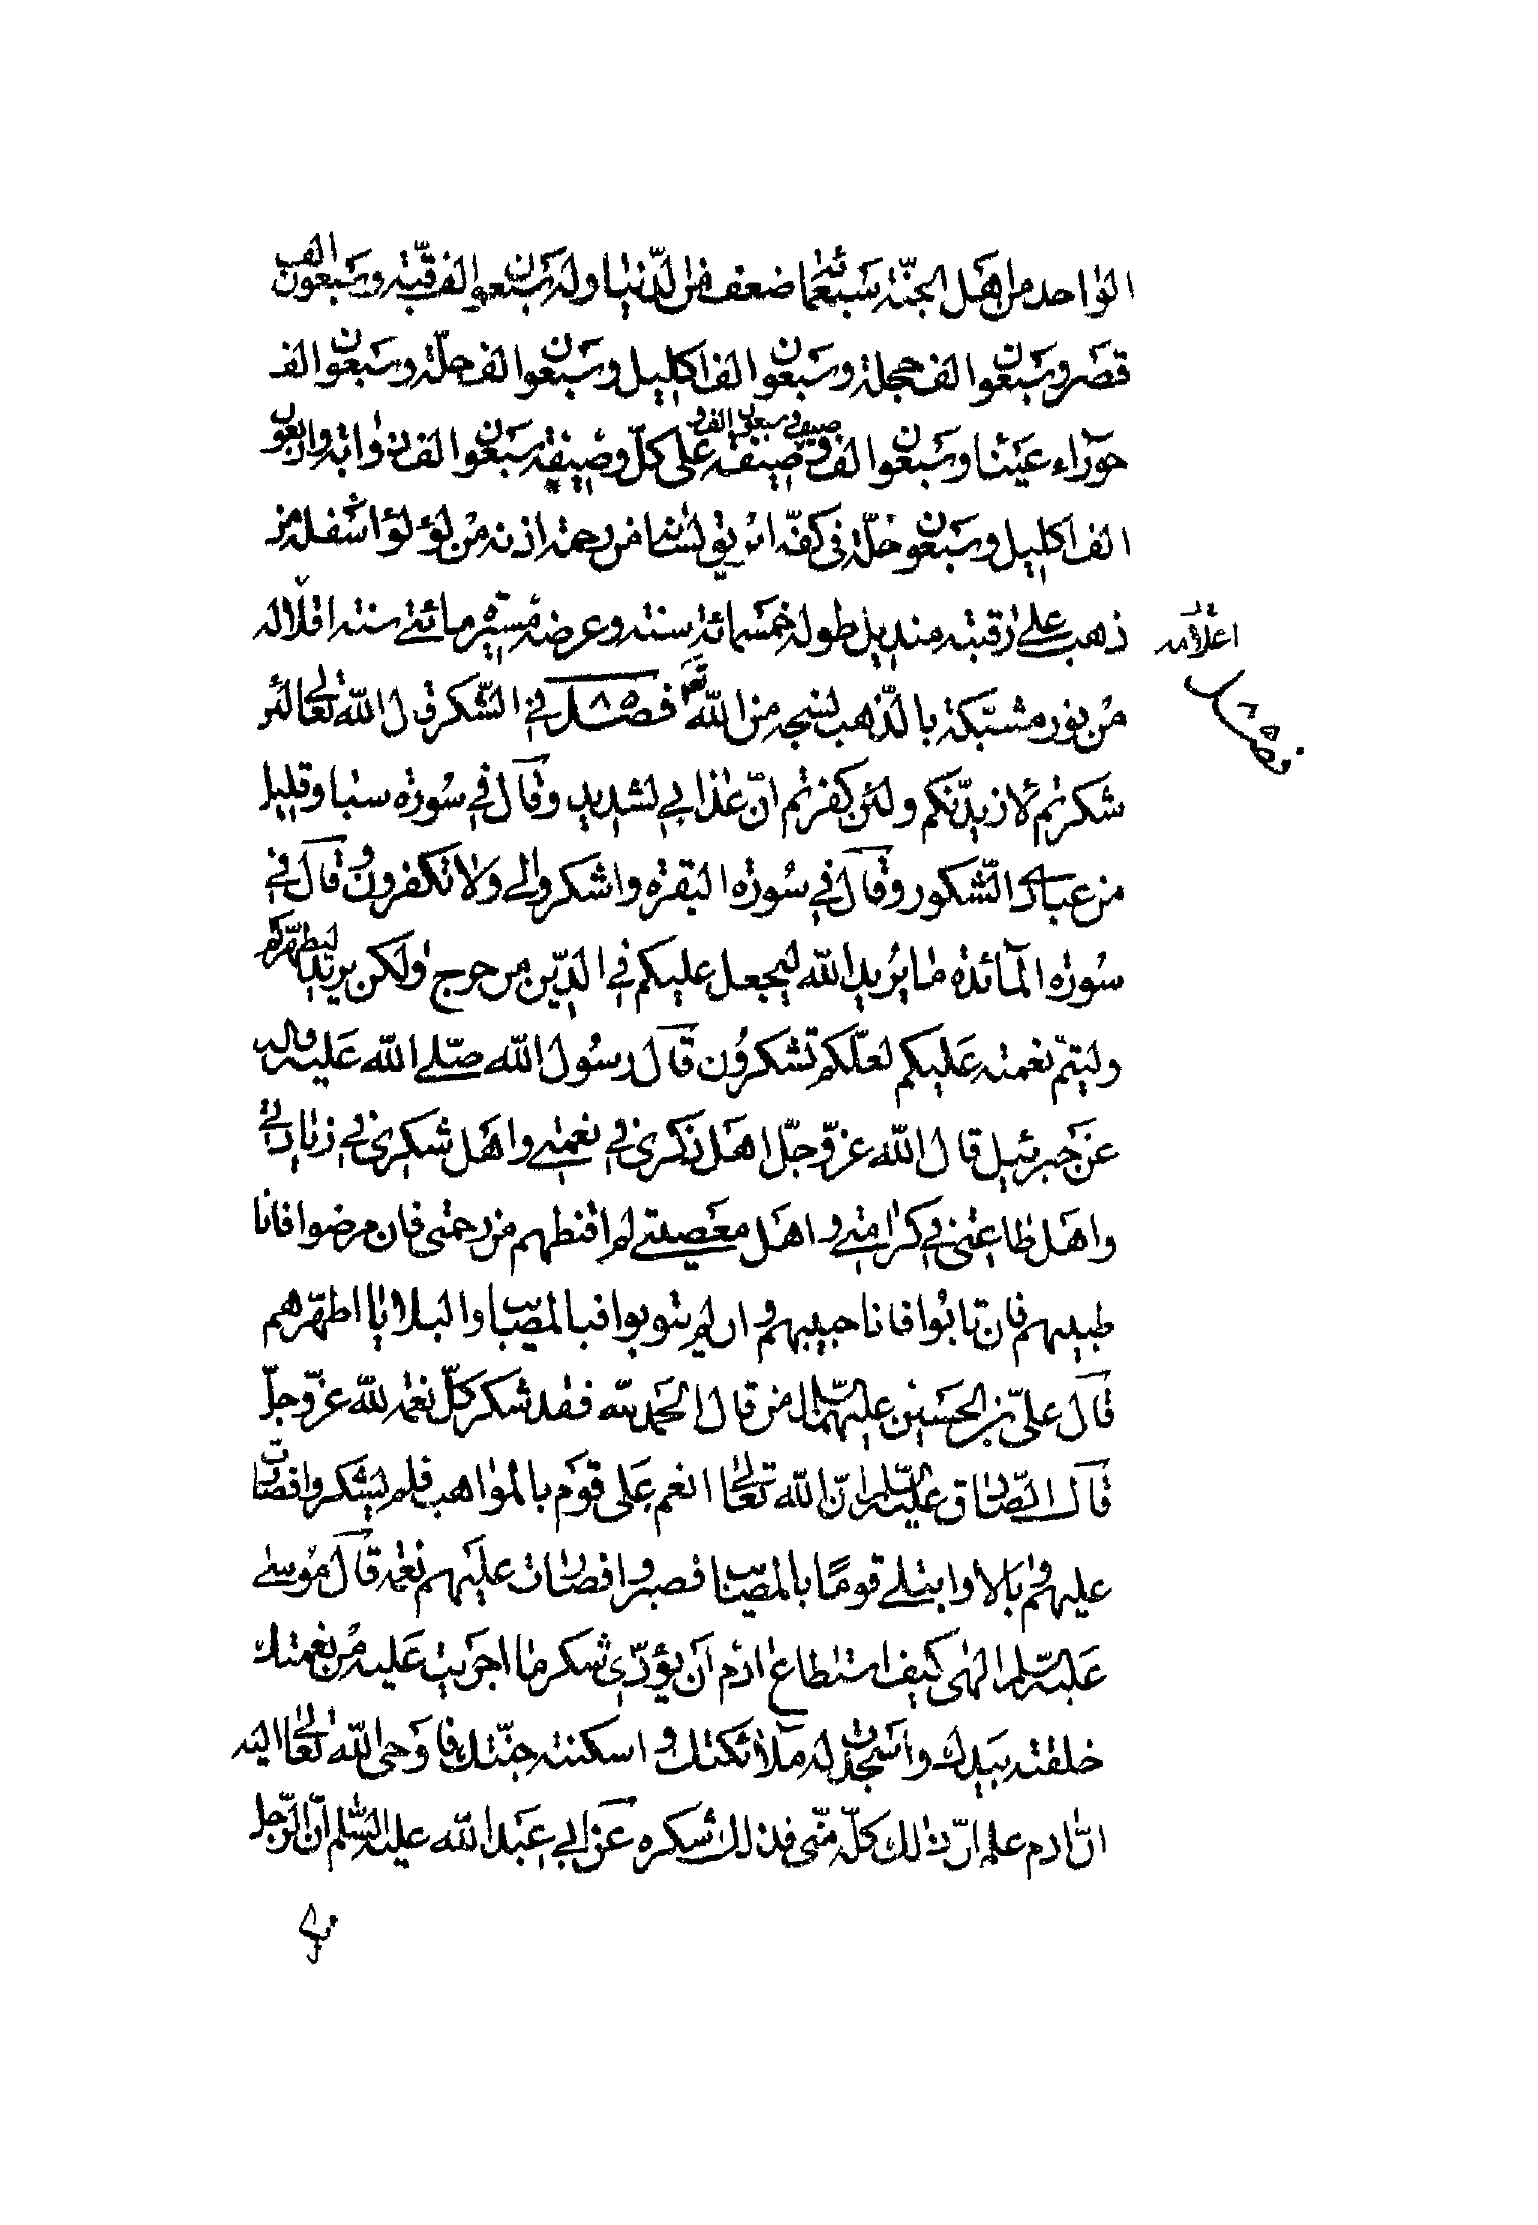 الواحد من اهل الجنة سبعمائة ضعف من الدنيا وله سبعون الف قبة وسبعون الف
قصر وسبعون الف حجلة وسبعون الف اكليل وسبعون الف حلة وسبعون الف
حوراء عينا وسبعون الف وصيف وسبعون الف وصيفة على كل وصيفة سبعون الف ذوابة واربعون
الف اكليل وسبعون حلة في كفه ابريق لسانه من رحمة اذنه من لؤلؤ اسفله من
ذهب على رقبته منديل طوله خمسمائة سنة وعرضه مسيرة مائتي سنة
اعلامه
من نور مشبكة بالذهب نسجه من الله تعالى فصل في الشكر قال الله تعالى لئن
فصل
شكرتم لازيدنكم ولئن كفرتم ان عذابي لشديد وقال في سورة سبا وقليل
من عبادى الشكور وقال في سورة البقرة واشكروا لي ولا تكفرون وقال في
سورة المآئدة ما يريد الله ليجعل عليكم في الدين من حرج ولكن يريد ليطهركم
وليتم نعمته عليكم لعلكم تشكرون قال رسول الله صلى الله عليه واله
عن جبرئيل قال الله عز وجل اهل ذكرى في نعمتي واهل شكرى في زيادتي
واهل طاعتى في كرامتي واهل معصيتي لم اقنطهم من رحمتى فان مرضوا فانا
طبيبهم فان تابوا فانا حبيبهم وان لم يتوبوا فبالمصايب والبلايا اطهرهم
قال على بن الحسين عليهما السلام من قال الحمد لله فقد شكر كل نعمة لله عز وجل
قال الصادق عليه السلام ان الله تعالى انعم على قوم بالمواهب فلم يشكروا فصارت
عليهم وبالا وابتلى قوما بالمصايب فصبروا فصارت عليهم نعمة قال موسى
عليه السلام الهى كيف استطاع ادم ان يؤدى شكر ما اجريت عليه من نعمتك
خلقته بيدك واسجدت له ملائكتك واسكنته جنتك فاوحى الله تعالى اليه
ان ادم علم ان ذلك كله منى فذلك شكره عن ابي عبد الله عليه السلم ان الرجل